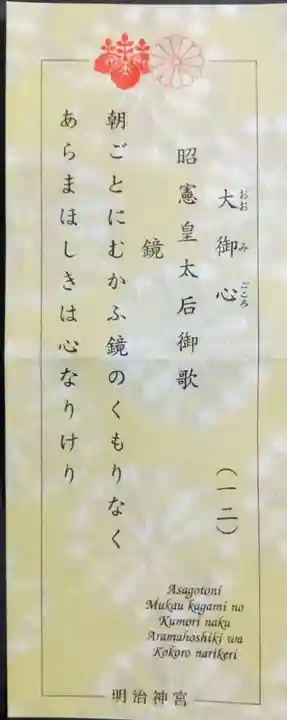 大御心 (一二)
おお み ごころ
昭憲皇太后御歌
鏡
朝ごとにむかふ鏡のくもりなく
あらまほしきは心なりけり
Asagotoni
Mukau kagami no
Kumori naku
Aramahoshiki wa
Kokoro narikeri
明治神宮